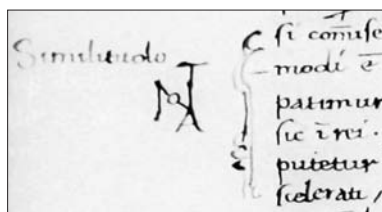 Similitudo
ſi com̄iſe
modi ē
patimur
ſic ī rei.
putetur
ſcelerati /